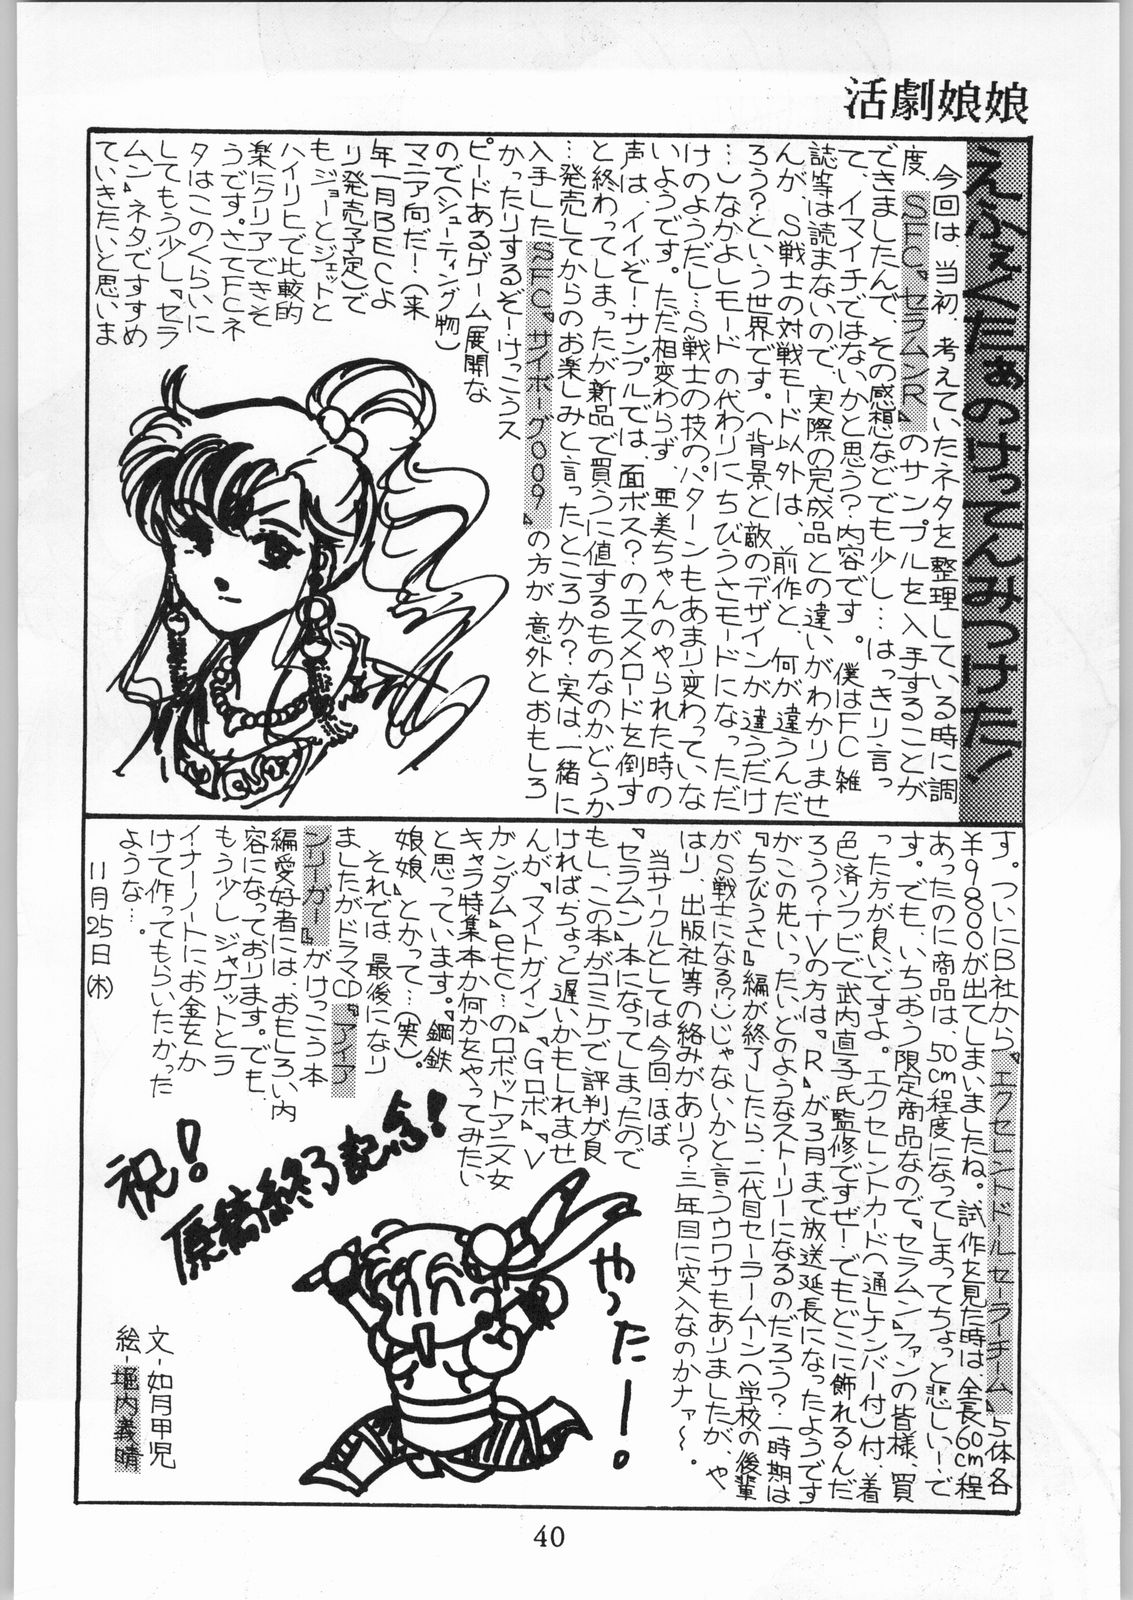 活劇娘娘
えふぇくたぁのけってんみつけた!
今回は、当初、考えていたネタを整理している時に調
度、SFC『セラムンR』のサンプルを入手することが
できましたんで、その感想などでも少し…はっきり言っ
て、イマイチではないかと思う?内容です。僕はFC雑
誌等は読まないので、実際の完成品との違いがわかりませ
んが、S戦士の対戦モード以外は、前作と、何が違うんだ
ろう?という世界です。(背景と敵のデザインが違うだけ
…)なかよしモードの代わりにちびうさモードになっただ
けのようだし…S戦士の技のパターンもあまり変わっていな
いようです。ただ相変わらず、亜美ちゃんのやられた時の
声は、イイぞ!サンプルでは、面ボス?のエスメロードを倒す
と終わってしまったが新品で買うに値するものなのかどうか
…発売してからのお楽しみと言ったところか?実は一緒に
入手したSFC『サイボーグ009』の方が意外とおもしろ
かったりするぞーけっこうス
ピードあるゲーム展開な
ので(シューティング物)
マニア向だ!(来
年一月BECよ
り発売予定)で
もジョーとジェットと
ハイリヒで比較的
楽にクリアできそ
うです。さてFCネ
タはこのくらいに
してもう少し『セラ
ムン』ネタですすめ
ていきたいと思いま
す。ついにB社から『エクセレントドールセーラーチーム』5体各
¥9800が出てしまいましたね。試作を見た時は、全長60cm程
あったのに商品は、50cm程度になってしまってちょっと悲しいーで
す。でも、いちおう限定商品なので『セラムン』ファンの皆様、買
った方が良いですよ。エクセレントカード(通しナンバー付)付、着
色済ソフビで武内直子氏監修ですぜーでもどこに飾れるんだ
ろう?TVの方は『R』が3月まで放送延長になったようです
がこの先いったいどのようなストーリーになるのだろう?一時期は
『ちびうさ』編が終了したら、二代目セーラームーン(学校の後輩
がS戦士になる?)じゃないかと言うウワサもありましたが、や
はり、出版社等の絡みがあり?三年目に突入なのかナァ〜。
当サークルとしては今回、ほぼ
『セラムン』本になってしまったので
もし、この本がコミケで評判が良
ければ、ちょっと遅いかもしれませ
んが『マイトガイン』『Gロボ』『V
ガンダム』etc…のロボットアニメ女
キャラ特集本か何かをやってみたい
と思っています。『鋼鉄
娘娘』とかって…(笑)。
それでは、最後になり
ましたがドラマCD『アイア
ンリーガー』がけっこう本
編愛好者には、おもしろい内
容になっております。でも、
もう少しジャケットとラ
イナーノートにお金をか
けて作ってもらいたかった
ような…。
11月25日(木)
祝!
原稿終了記念!
やったー!
文-如月甲児
絵-堀内義晴
40